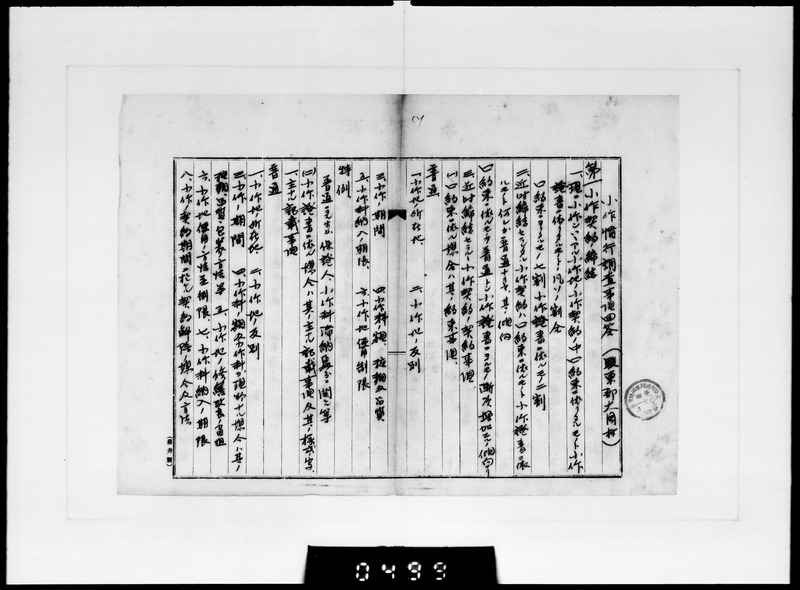 小作慣行調査事項回答（駿東郡大岡村）
第一 小作契約締結
一、現ニ小作シツヽアル小作地ノ小作契約ノ中口約束ニ依リタルモノト小作
證書ニ依リタルモノトノ凡ソノ割合
口約束ニヨルモノ七割 小作證書ニ依ルモノ三割
二、近時締結セラルヽ小作契約ハ口約束ニ依ルモノト小作證書ニ依
ルモノト何レカ普通ナリヤ、其ノ傾向
口約束ニ依ルモノ普通トシ小作證書ニヨルモノ漸次増加スルノ傾向アリ
三、近時締結セラルヽ小作契約ノ契約事項
（一）口約束ニ依ル場合ハ其ノ約束事項、
普通
一、小作地ノ所在地 二、小作地ノ反別
三、小作期間 四、小作料ノ額、種類及品質
五、小作料納入ノ期限、 六、小作地使用制限
特例
普通ノ 保證人 小作料滞納 ニ関スル等
（二）小作證書ニ依ル場合ハ其ノ主ナル記載事項及其ノ様式寫、
一、主ナル記載事項
普通
一、小作地ノ所在地 二、小作地ノ反別
三、小作期間 四、小作料ノ額及小作料ノ現物ナル場合ハ其ノ
種類、品質、包装ノ方法等 五、小作地ノ修繕改良ノ負担
六、小作地使用ノ方法並制限 七、小作料納入ノ期限
八、小作契約期間ニ於ケル契約解除ノ場合及方法
0499